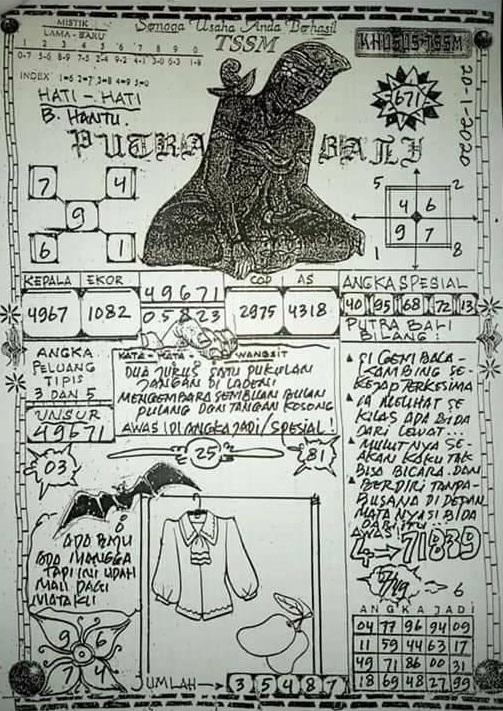 Semoga Usaha Anda Berhasil
MISTIK
LAMA - BARU
1 2 3 4 5 6 7 8 9 0
TSSM
KHUSUS-TSSM
20-1-2020
INDEX
HATI - HATI
B. HANTU.
671
PUTRA BALI
7 4
9
6 1
5 2
4 6
9 7
1 8
KEPALA EKOR
4967 1082
49671
05823
COP AS
2975 4318
ANGKA SPESIAL
40 95 68 72 13
PUTRA BALI
BILANG :
ANGKA
PELUANG
TIPIS
3 DAN 5
UNSUR
49671
KATA - KATA - WANGSIT
DUA JURUS SATU PUKULAN
JANGAN DI LADENI
MENGEMBARA SEMBILAN BULAN
PULANG DGN TANGAN KOSONG
AWAS! DI ANGKA JADI/SPESIAL!
SI GEMBALA -
KAMBING SE-
KEJAP TERKESIMA
IA MELIHAT SE
KILAS ADA BIDA
DARI LEWAT...
MULUTNYA SE-
AKAN KAKU TAK
BISA BICARA DAN
BERDIRI TANPA-
BUSANA DI DEPAN
MATANYA SI BIDA
DARI ITU...
AWAS
4 → 71839
25
81
03
ADA BAJU
ADA MANGGA
TAPI INI UDAH
MALI DAGI
MATAKU
6
ANGKA JADI
04 77 96 94 09
11 59 44 63 17
49 71 86 00 31
18 69 48 27 99
9 6
7 4
JUMLAH → 3 5 4 8 7